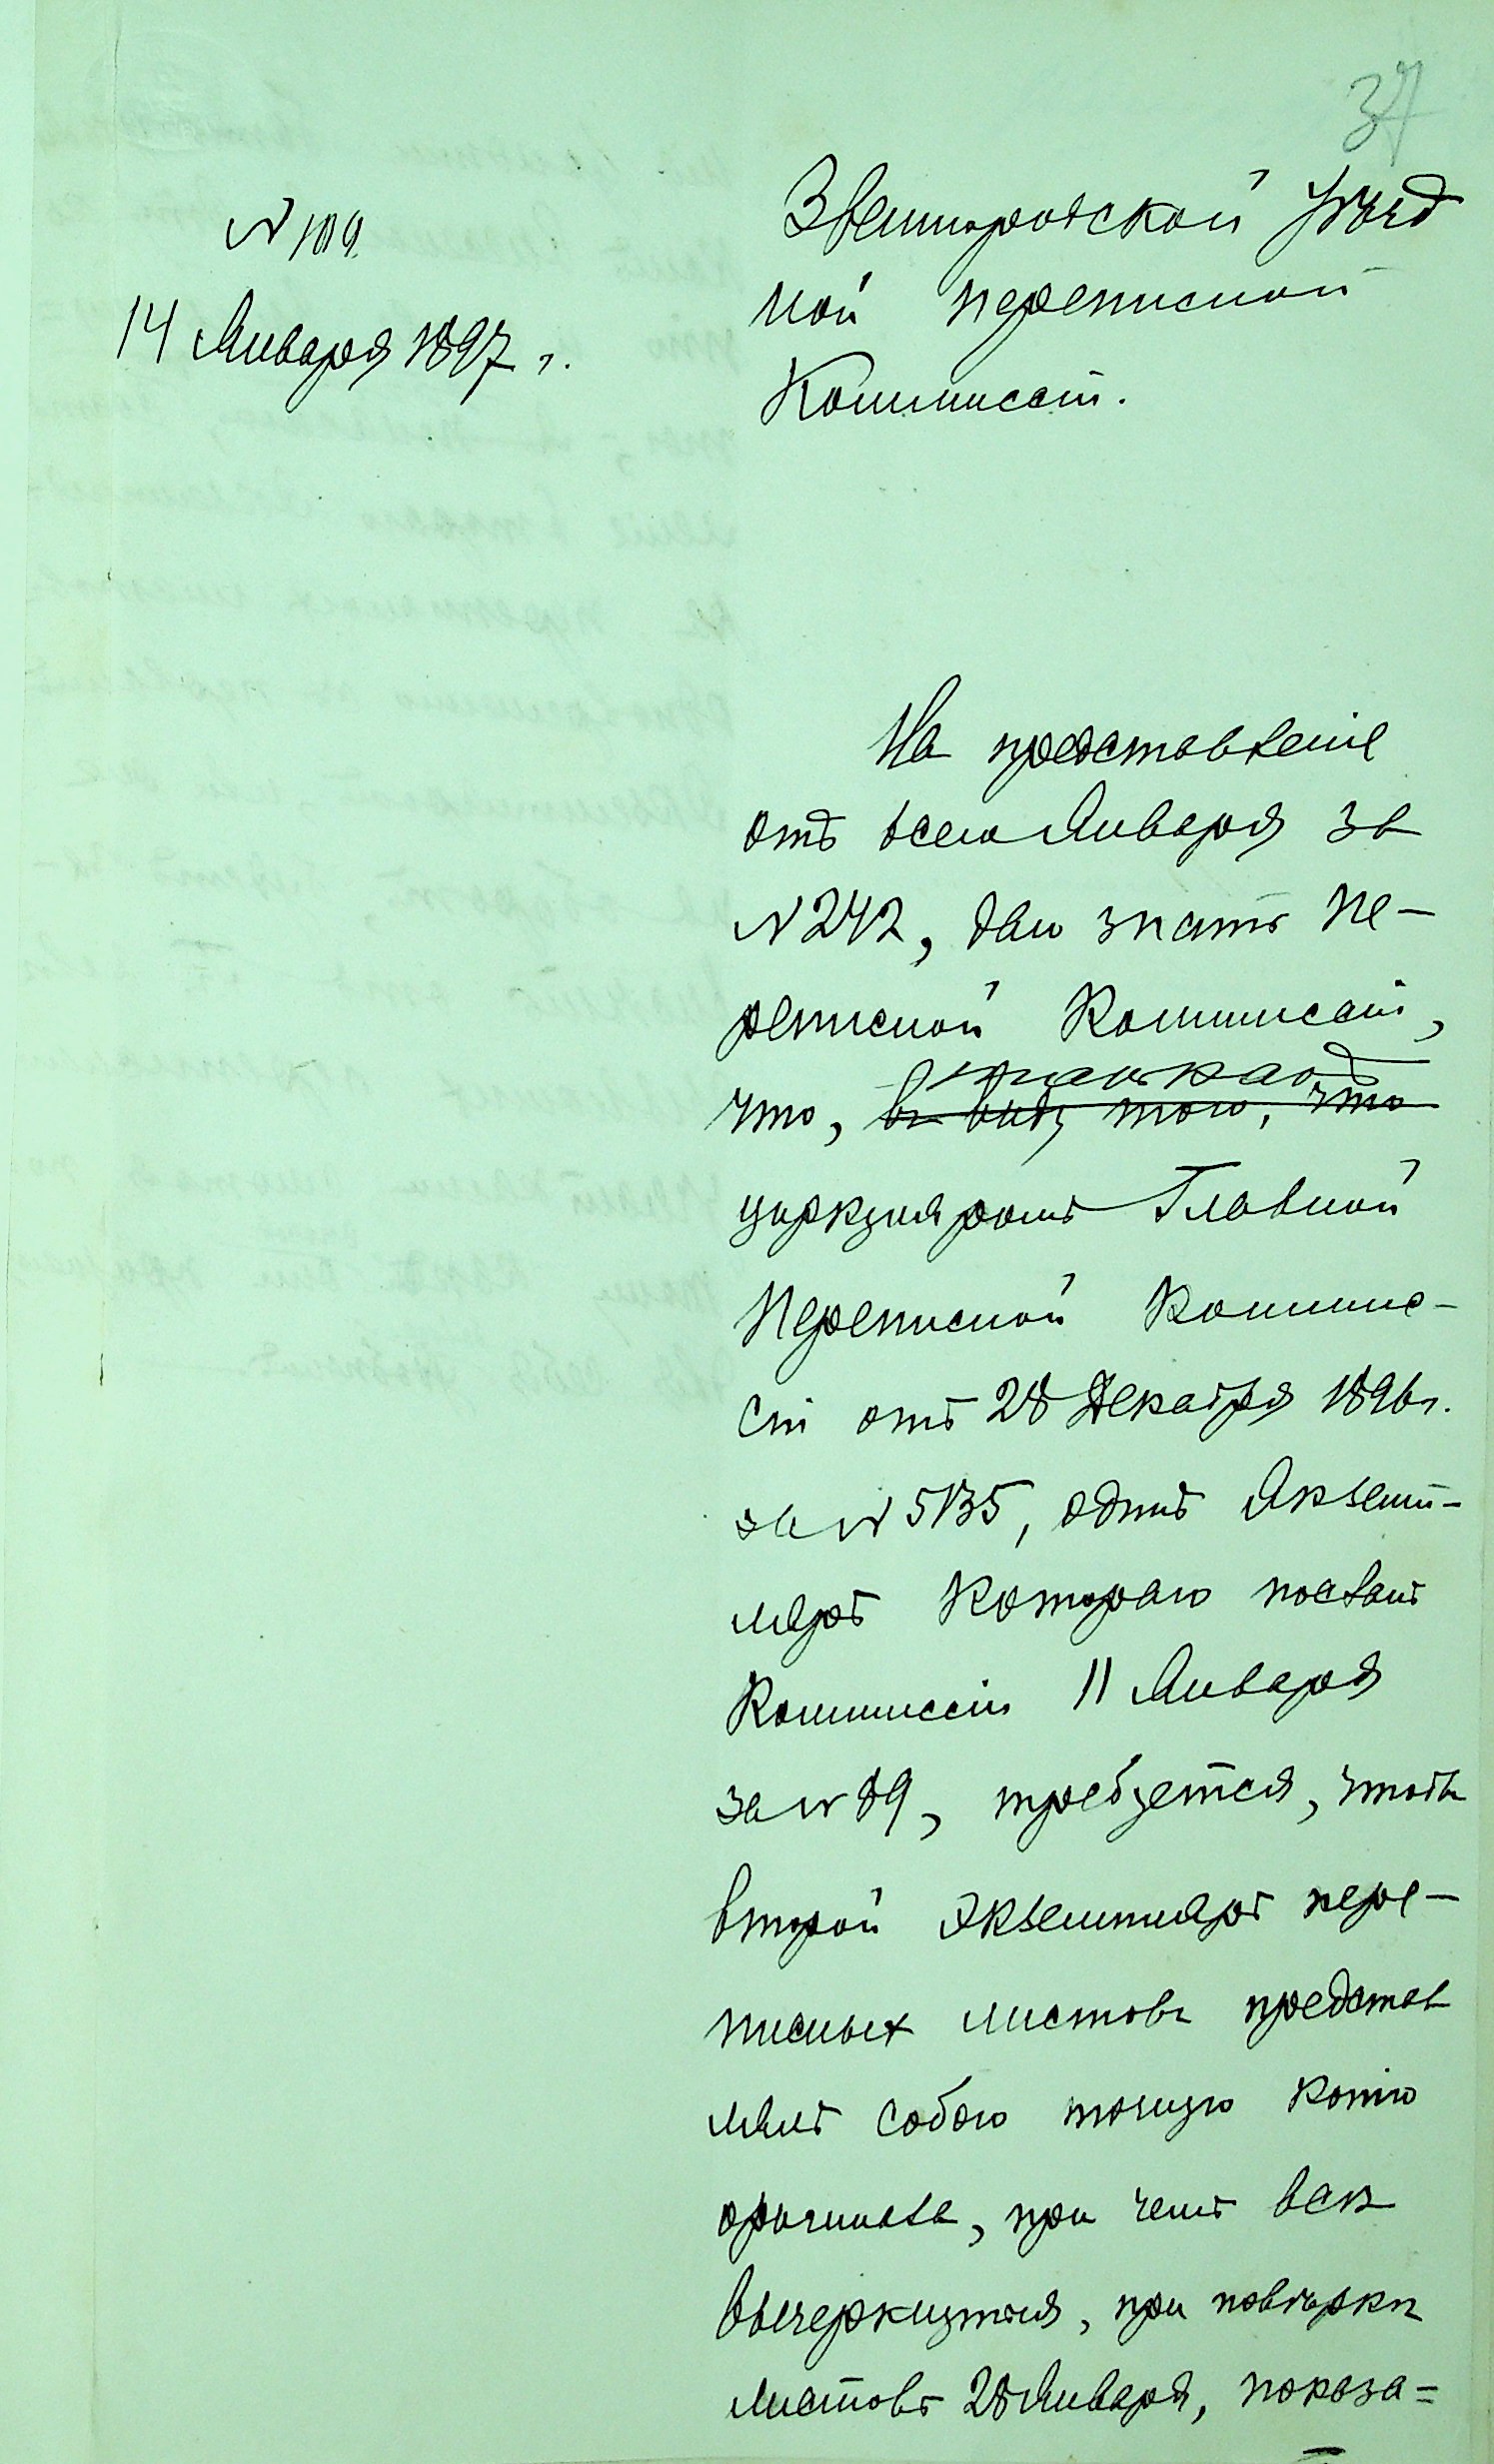 37
№ 109.
14 Января 1897 г.
Звенигородской Уѣзд
ной переписной
Коммиссіи.
На представленіе
отъ сего Января за
№ 242, даю знать Пе-
реписной Коммиссіи,
что, въ виду того, что
циркуляромъ Главной
Переписной Коммис-
сіи отъ 28 Декабря 1896 г.
за № 5135, одинъ экзем-
пляръ котораго посланъ
Коммиссіи 11 Января
за № 89, требуется, чтобы
второй экземпляръ пере-
писныхъ листовъ представ
лялъ собою точную копію
оригинала, при чемъ всѣ
вычеркнутыя, при повѣрки
листовъ 28 Января, показа=